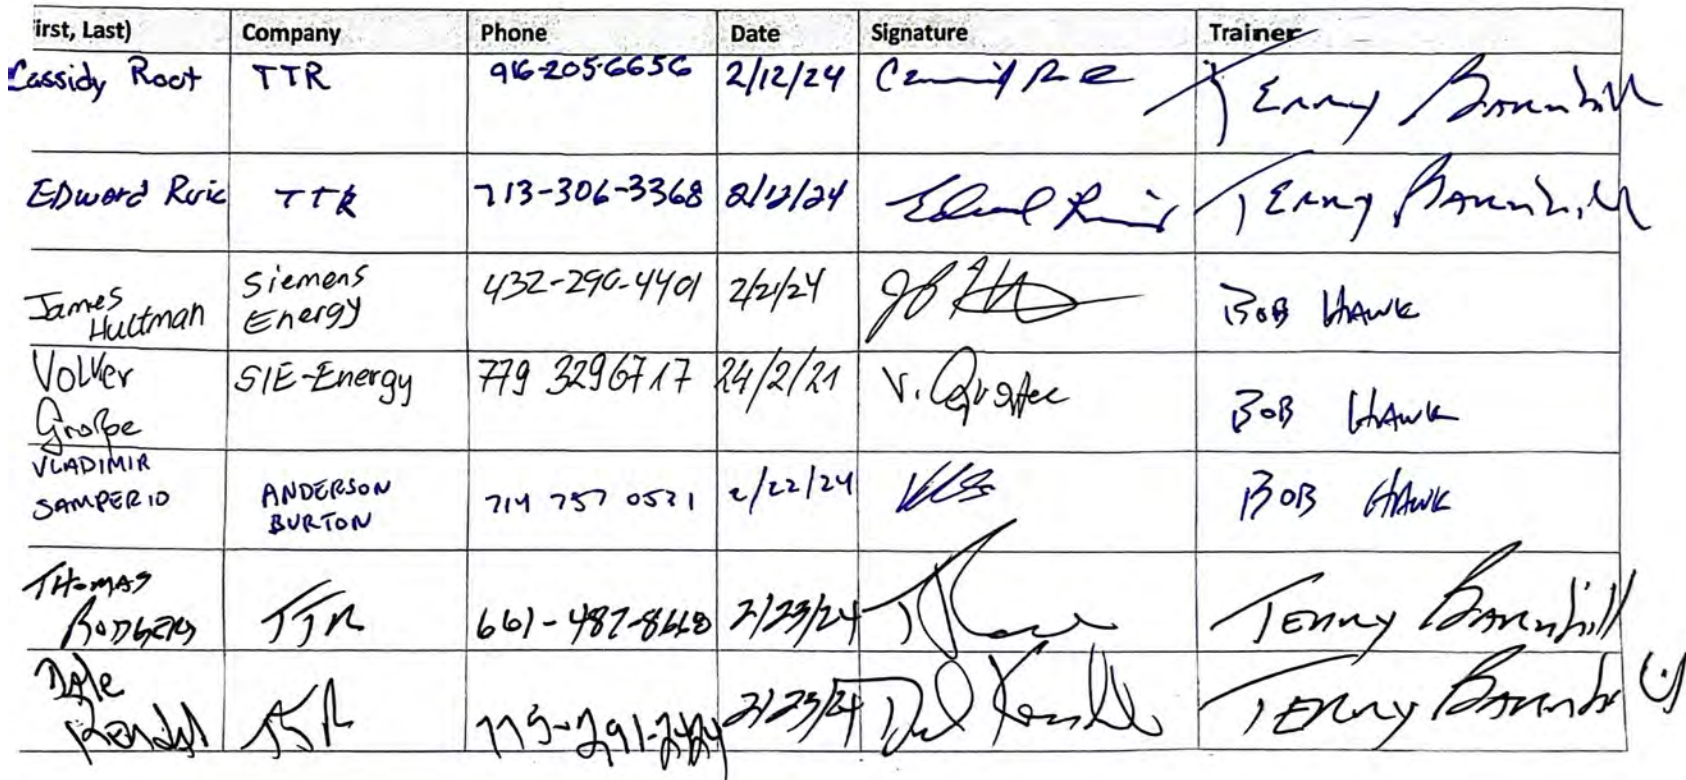 irst, Last) Company Phone Date Signature Trainer
Cassidy Root TTR 916-205-6656 2/12/24 Terry Barnhill
Edward Ruic TTR 713-306-3368 2/12/24 Terry Barnhill
James Hultman Siemens Energy 432-290-4401 2/21/24 Bob Hawk
Volker Große SIE-Energy 779 3296717 24/2/21 V. Große Bob Hawk
VLADIMIR SAMPERIO ANDERSON BURTON 714 757 0531 2/22/24 Bob Hawk
THOMAS RODGERS TTR 661-487-8668 2/23/24 Terry Barnhill
Dale TTR 2/23/24 Terry Barnhill